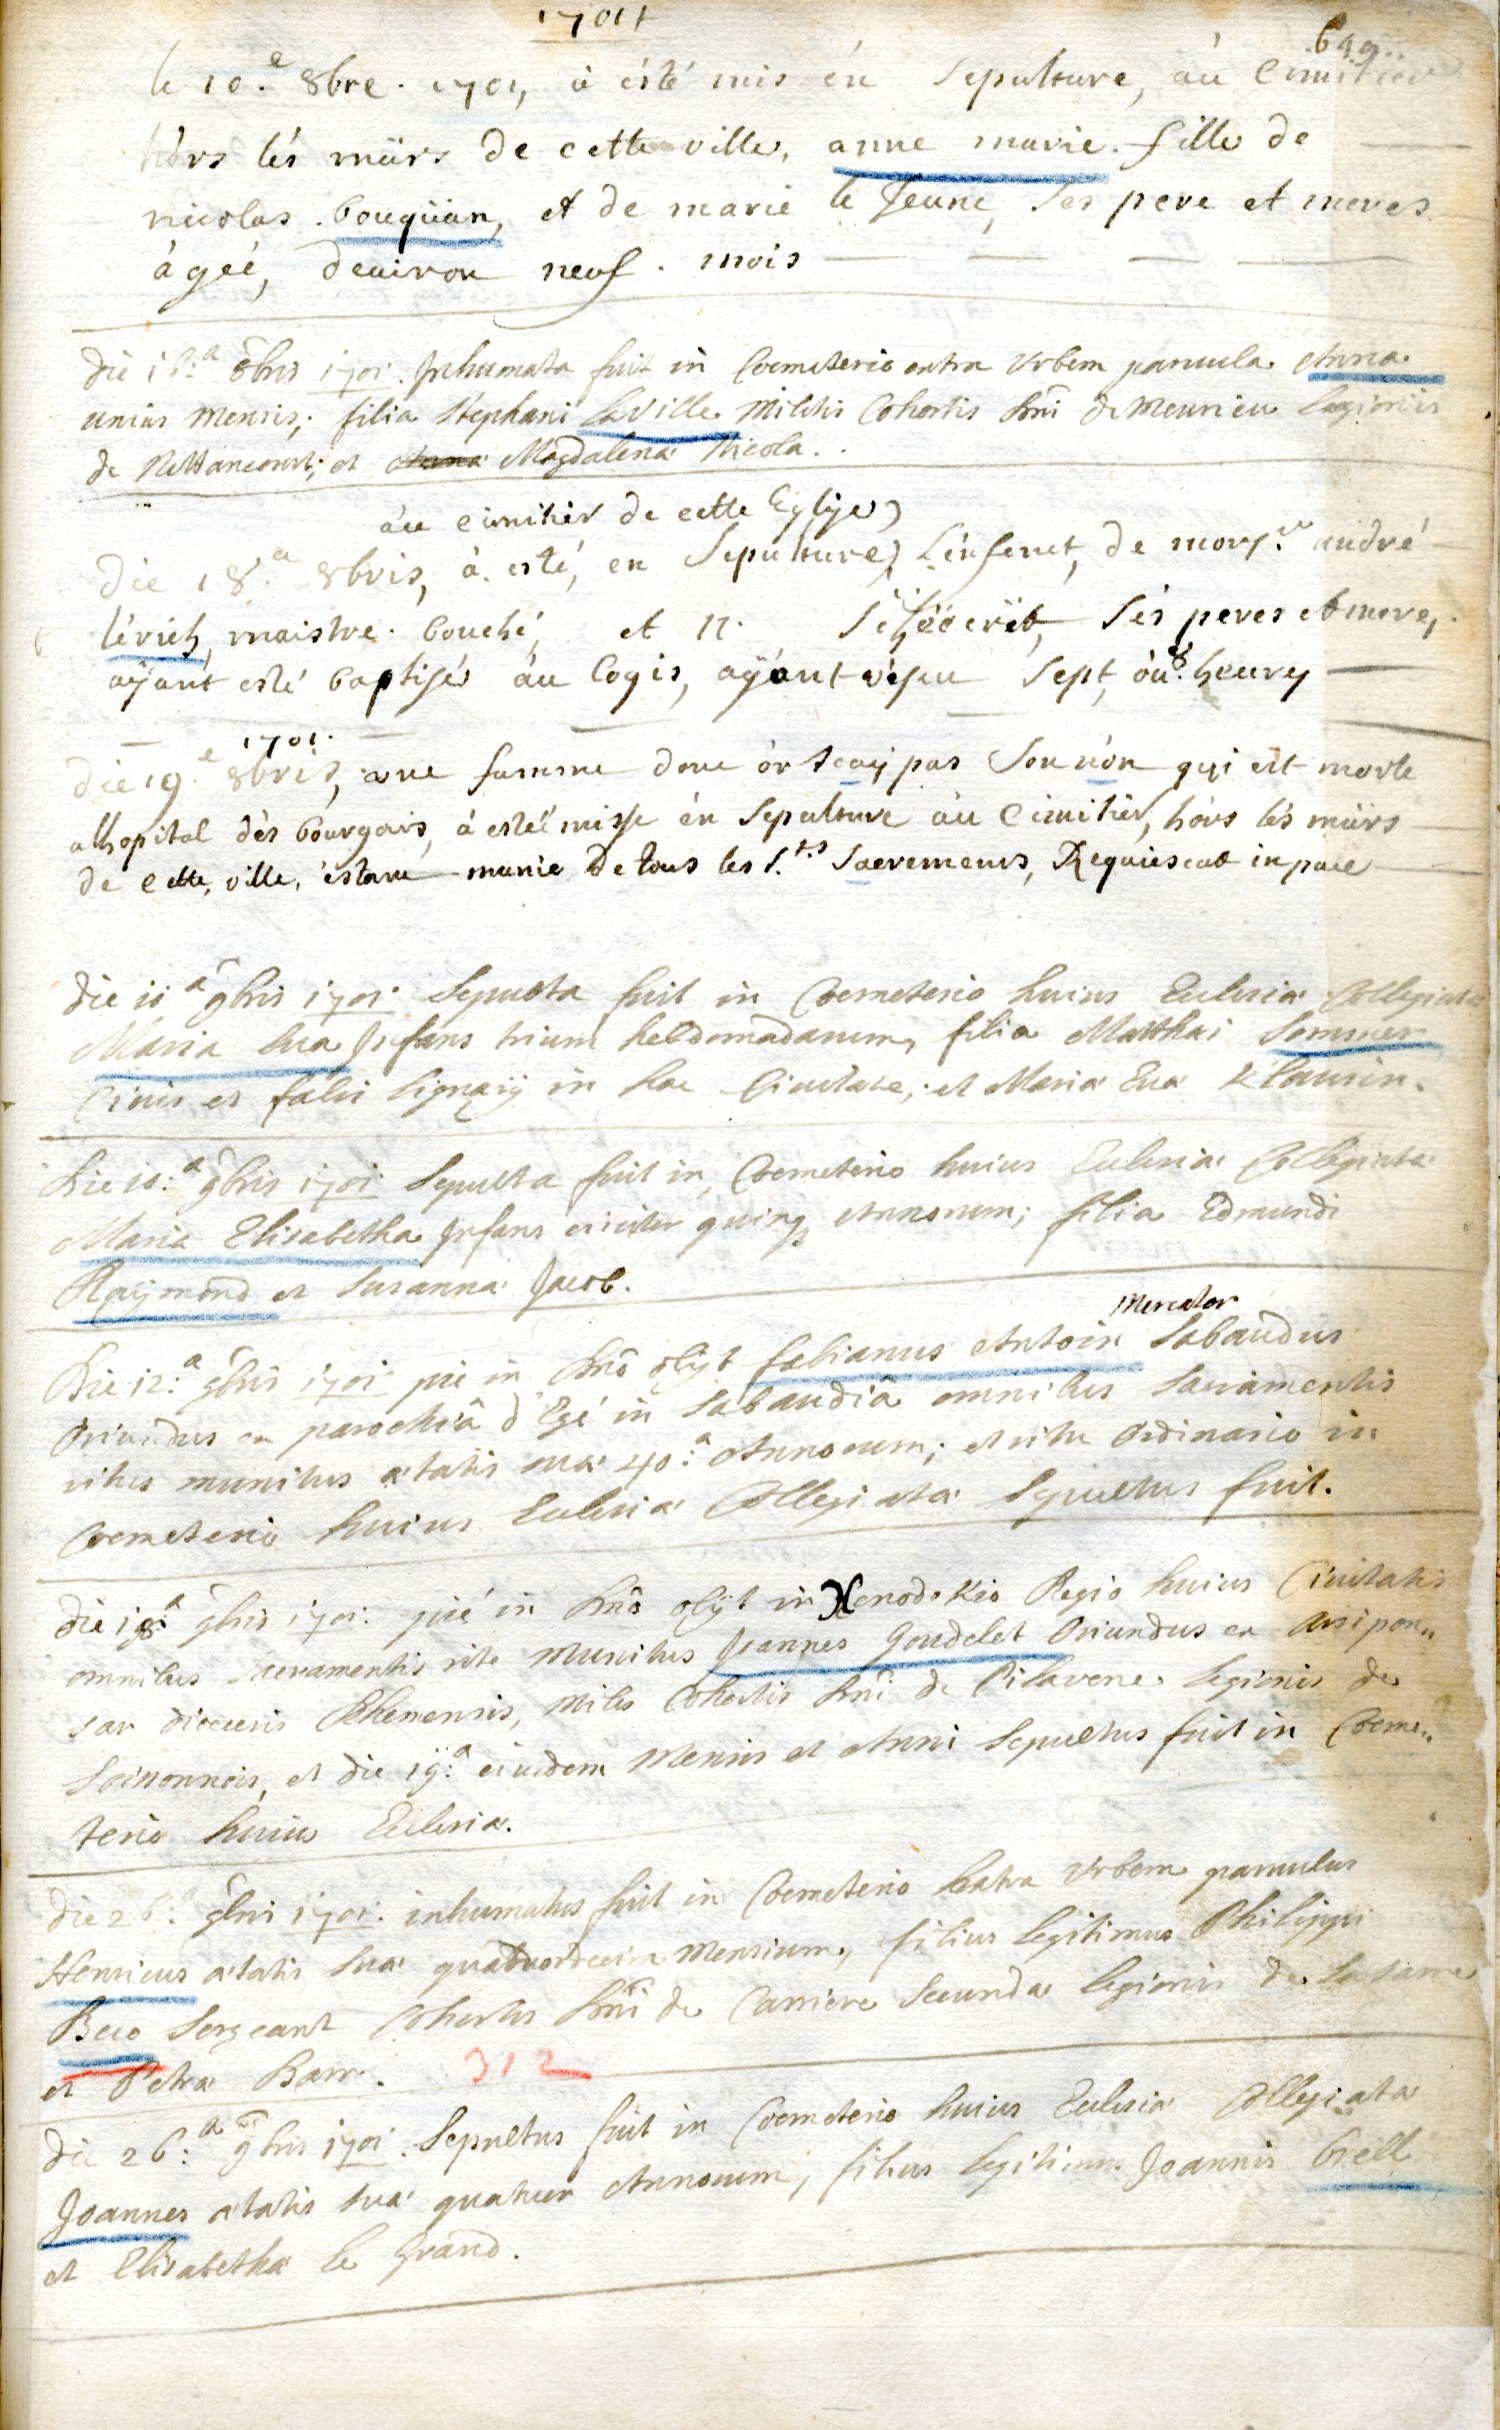 1701
649
le 10.e 8bre. 1701, à ésté mis én Sepulture, áu Cimitier
hórs lés mürs de cette ville, anne marie. fille de
nicolas. Couqüan, et de marie le Jeune, Ses pere et meres
ágéé, deuiron neuf. mois
die 16.a 8bris 1701. Inhumata fuit in Coemeterio extra Urbem paruula Anna
unius Mensis, filia Stephani LaVille Militis Cohortis Dni de Meurieu Legionis
de Nettancourt; et Magdalena Nicola..
áu cimitiér de cette Eglise)
die 18.a 8bris, à. esté, en Sepulture) L'énfenct, de mons.r andré
lérich, maistre. bouché, et n. Ses peres et mere,
aÿant esté baptisés áu logis, aÿant vésqu Sept, óu 8. heures
1701.
die 19.e 8bris, une famme donc ón scaÿ pas Son nón qui est morte
alhopital dés bourgois, á estéé misse én Sepulture áu Cimitiér, hórs lés mürs
de Cette, ville, éstant munie de tous les S.ts Sacremens, Requiescat in pace
die 11.a 9bris 1701. Sepulta fuit in Coemeterio huius Eclesiæ Collegiatæ
Maria Eua Infans trium hebdomadarum, filia Matthæi Sommer
Ciuis et fabri lignarij in hac Ciuitate; et Mariæ Euæ Klausin.
Die 11.a 9bris 1701. Sepulta fuit in Coemeterio huius Eclesiæ Collegiatæ
Maria Elisabetha Infans circiter quinq Annorum; filia Edmundi
Raÿmond et Susanna Jacob.
Mercator
Die 12.a 9bris 1701. pie in Dno obijt fabianus Antoin Sabaudus
Oriundus ex parochiâ d'Egé in Sabaudiâ omnibus Sacramentis
ritus munitus ætatis suæ 40.a Annorum; et ritu Ordinario in
Coemeterio huius Eclesiæ Collegiatæ Sepultus fuit.
Die 18.a 9bris 1701. pié in Dno obijt in Xenodokio Regio huius Ciuitatis
omnibus sacramentis rite Munitus Joannes Goudelet Oriundus ex Arsipon„
sar dioecesis Rhemensis, Miles Cohortis Dni de Pilavene Legionis de
Soissonnois, et die 19.a eiusdem Mensis et Anni Sepultus fuit in Coeme„
terio huius Eclesiæ.
Die 26. 9bris 1701. inhumatus fuit in Coemeterio Extra Urbem paruulus
Henricus ætatis suæ quatuordecim Mensium, filius legitimus Philippi
Beco Sergeant Cohortis Dni de Carriere Secundæ legionis de
et Petra Barr. 312
Die 26.a 9bris 1701. Sepultus fuit in Coemeterio huius Eclesiæ Collegiatæ
Joannes ætatis suæ quatuor Annorum, filius legitimus Joannis Giell
et Elisabetha le Grand.